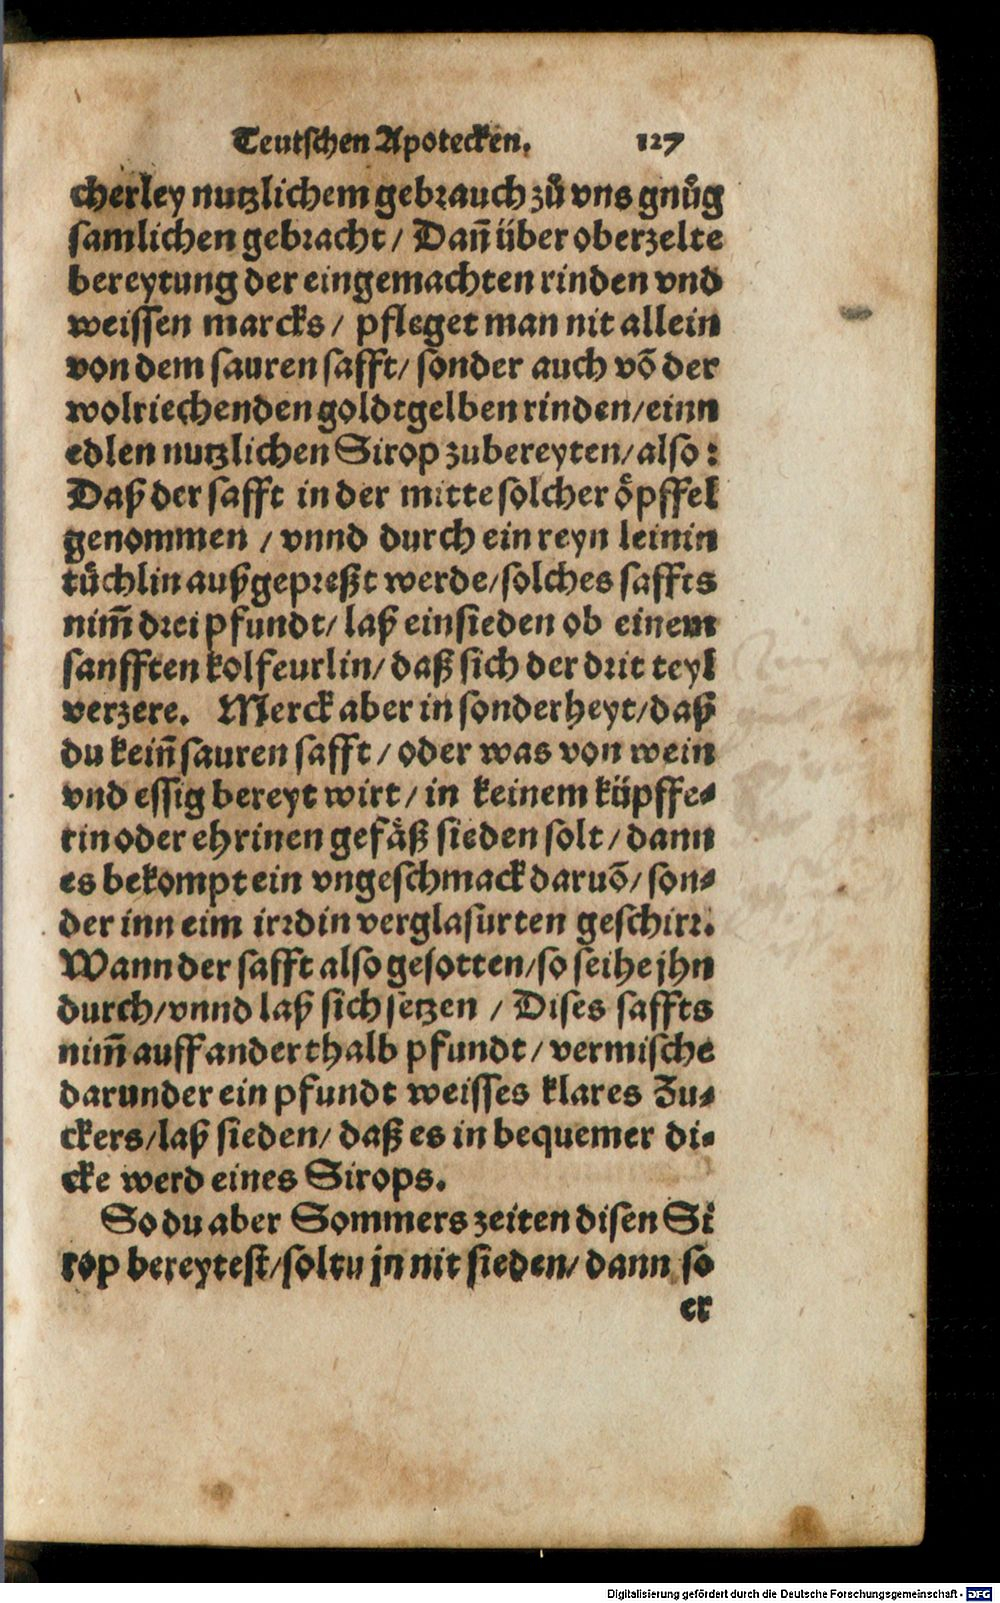 Teutschen Apotecken. 127
cherley nutzlichem gebrauch zů vns gnůg
samlichen gebracht / Dañ über oberzelte
bereytung der eingemachten rinden vnd
weissen marcks / pfleget man nit allein
von dem sauren safft / sonder auch võ der
wolriechenden goldtgelben rinden / einn
edlen nutzlichen Sirop zubereyten / also :
Daß der safft in der mitte solcher öpffel
genommen / vnnd durch ein reyn leinin
tüchlin außgepreßt werde / solches saffts
nim̃ drei pfundt / laß einsieden ob einem
sanfften kolfeurlin / daß sich der drit teyl
verzere. Merck aber in sonderheyt / daß
du keiñ sauren safft / oder was von wein
vnd essig bereyt wirt / in keinem küpffe-
rin oder ehrinen gefäß sieden solt / dann
es bekompt ein vngeschmack daruõ / son-
der inn eim irrdin verglasurten geschirr.
Wann der safft also gesotten / so seihe jhn
durch / vnnd laß sich setzen / Dises saffts
nim̃ auff anderthalb pfundt / vermische
darunder ein pfundt weisses klares Zu-
ckers / laß sieden / daß es in bequemer di-
cke werd eines Sirops.
So du aber Sommers zeiten disen Si
rop bereytest / soltu jn nit sieden / dann so
er
Digitalisierung gefördert durch die Deutsche Forschungsgemeinschaft - DFG